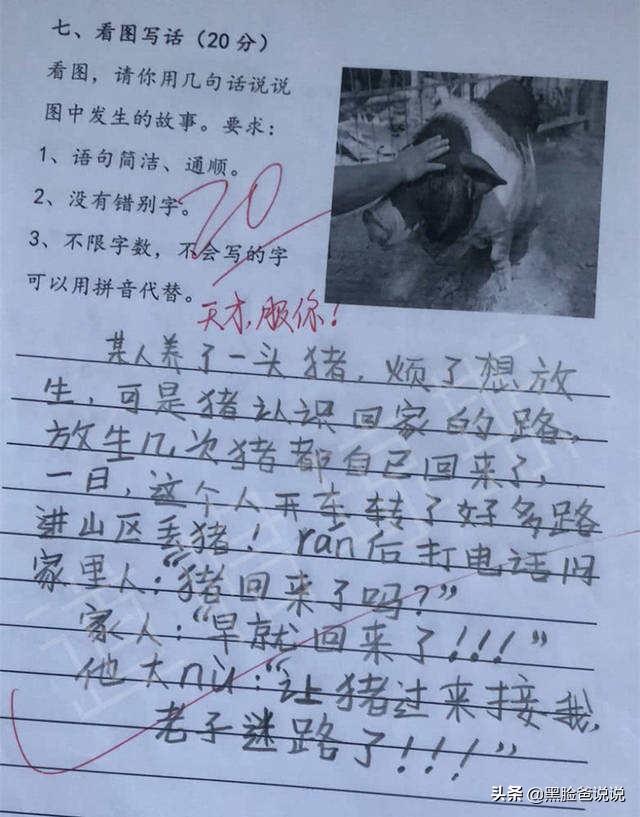 七、看图写话（20分）
看图，请你用几句话说说
图中发生的故事。要求：
1、语句简洁、通顺。
2、没有错别字。
3、不限字数，不会写的字
可以用拼音代替。
20
天才，服你！
某人养了一头猪，烦了想放
生，可是猪认识回家的路，
放生几次猪都自己回来了，
一日，这个人开车转了好多路
进山区丢猪！rán后打电话问
家里人：“猪回来了吗？”
家人：“早就回来了!!!”
他大nù：“让猪过来接我，
老子迷路了!!!”
头条 @黑脸爸说说